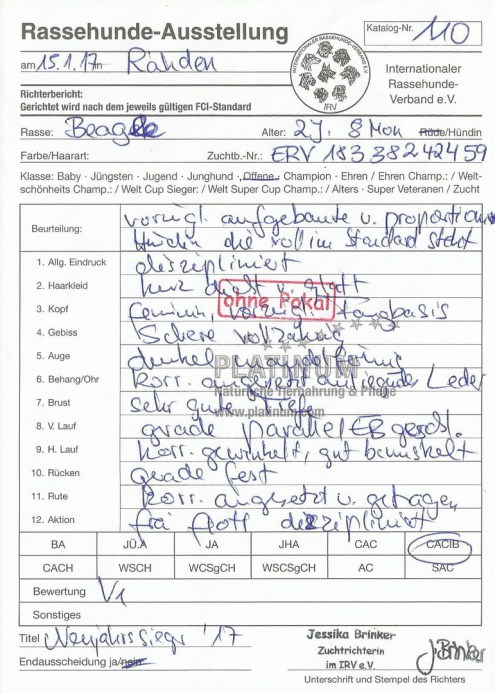 Rassehunde-Ausstellung
Katalog-Nr. 110
am 15.1.17 in Rahden
INTERNATIONALER RASSEHUNDE-VERBAND E.V.
IRV
Internationaler
Rassehunde-
Verband e.V.
Richterbericht:
Gerichtet wird nach dem jeweils gültigen FCI-Standard
Rasse: Beagle Alter: 2 J. 8 Mon Rüde/Hündin
Farbe/Haarart: Zuchtb.-Nr.: ERV 18338242459
Klasse: Baby · Jüngsten · Jugend · Junghund · Offene · Champion · Ehren / Ehren Champ.: / Welt-
schönheits Champ.: / Welt Cup Sieger: / Welt Super Cup Champ.: / Alters · Super Veteranen / Zucht
Beurteilung: vorzügl. aufgebaute u. proportion.
Hündin die voll im Standard steht
1. Allg. Eindruck diszipliniert
2. Haarkleid kurz dicht u. glatt
ohne Pokal
3. Kopf feminin vorzügl. Fangbasis
4. Gebiss Schere vollzahnig
5. Auge dunkel mandelförmig
PLATINUM
6. Behang/Ohr korr. angesetzt anliegendes Leder
Natürliche Tiernahrung & Pflege
7. Brust sehr gute Tiefe
www.platinum.com
8. V. Lauf gerade parallel EB geschl.
9. H. Lauf korr. gewinkelt, gut bemuskelt
10. Rücken gerade fest
11. Rute korr. angesetzt u. getragen
12. Aktion frei flott diszipliniert
BA JÜ.A JA JHA CAC CACIB
CACH WSCH WCSgCH WSCSgCH AC SAC
Bewertung V1
Sonstiges
Titel Neujahrssieger '17
Endausscheidung ja/nein
Jessika Brinker
Zuchtrichterin
im IRV e.V.
J. Brinker
Unterschrift und Stempel des Richters